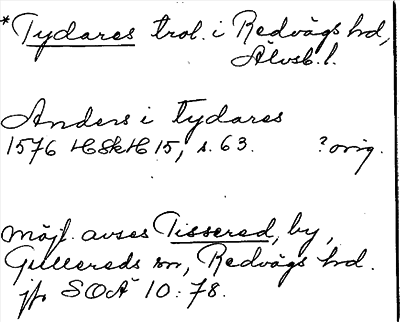 *Tydares trol. i Redvägs hd,
Älvsb. l.
Anders i tydares
1576 HSkH 15, s. 63. ? orig.
möjl. avses Tissered, by,
Gullereds sn, Redvägs hd.
jfr SOÄ 10:78.